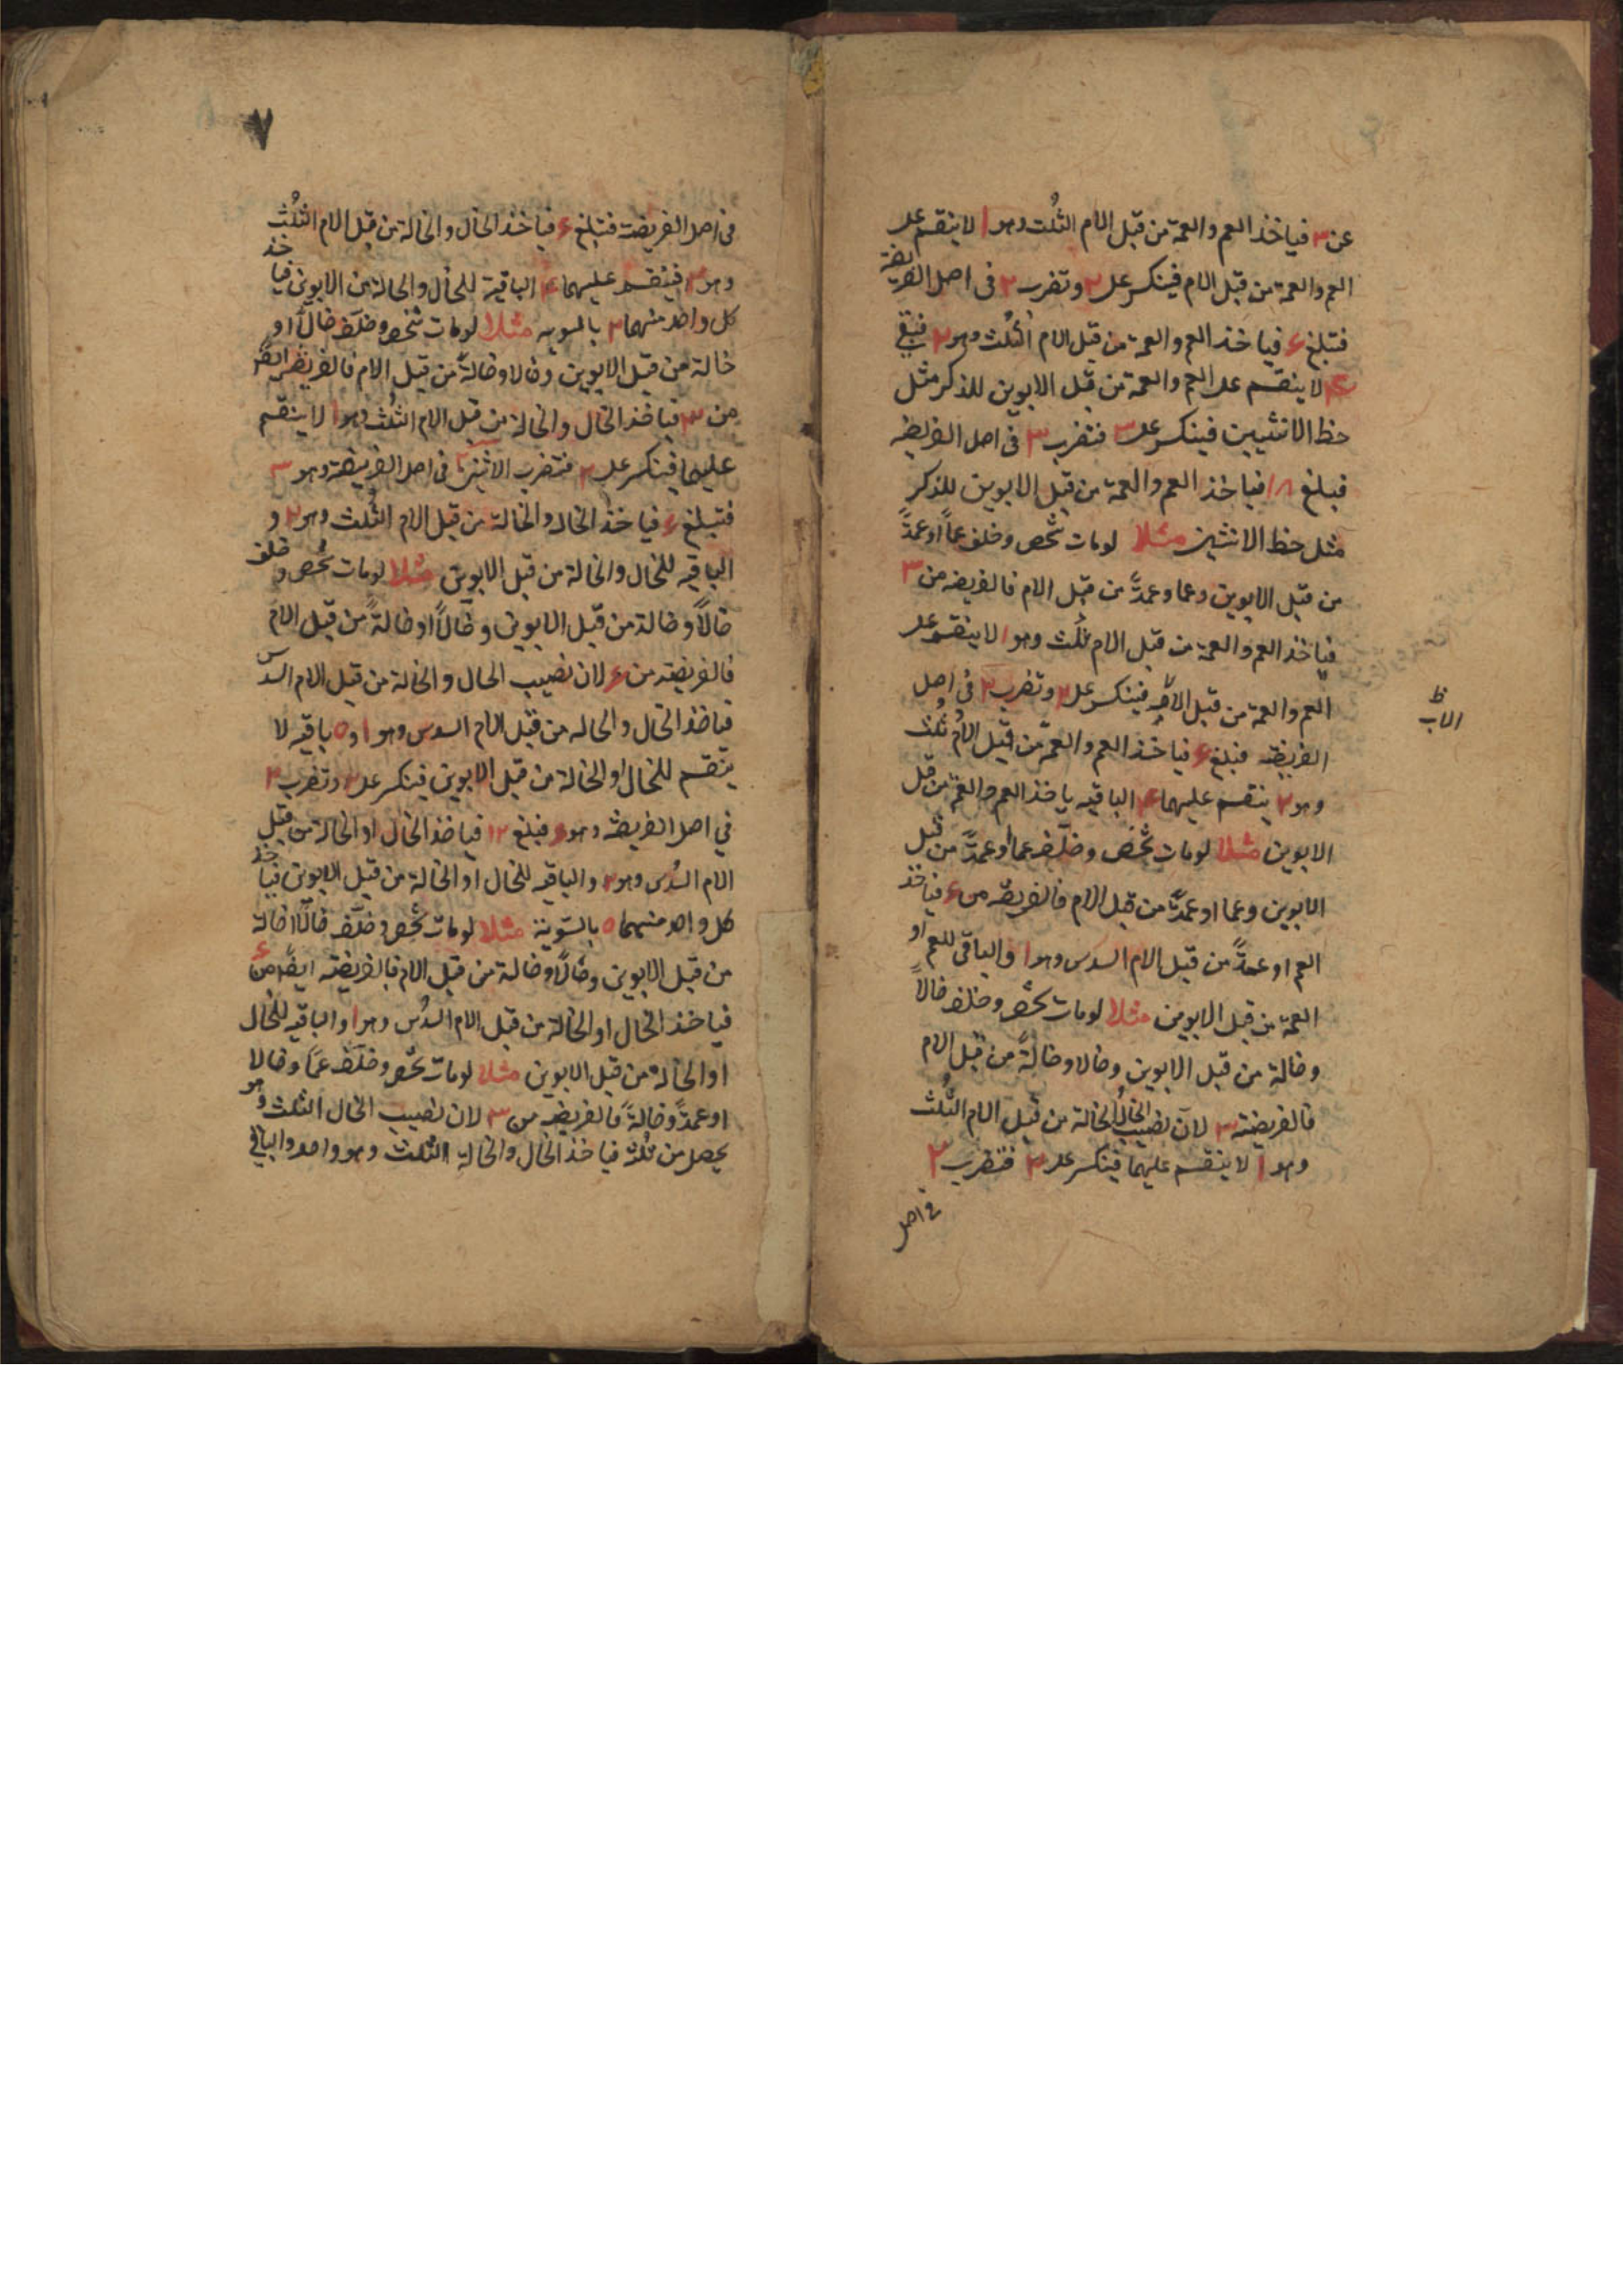 عن ٣ فياخذ العم والعمة من قبل الام الثلث وهو ١ لا ينقسم على
العم والعمة من قبل الام فينكسر على ٢ وتضرب ٢ فى اصل الفريضة
فتبلغ ٦ فياخذ العم والعمة من قبل الام الثلث وهو ٢ فتبقى
٤ لا ينقسم على العم والعمة من قبل الابوين للذكر مثل
حظ الانثيين فينكسر على ٣ فتضرب ٣ فى اصل الفريضه
فبلغ ١٨ فياخذ العم والعمة من قبل الابوين للذكر
مثل حظ الانثيين مثلا لومات شخص وخلف عماً او عمةً
من قبل الابوين وعما وعمةً من قبل الام فالفريضه من ٣
فياخذ العم والعمة من قبل الام ثلث وهو ١ لا ينقسم على
العم والعمة من قبل الام فينكسر على ٢ وتضرب ٢ فى اصل
الفريضه فبلغ ٦ فياخذ العم والعمة من قبل الام ثلث
وهو ٢ ينقسم عليهما ٤ الباقيه ياخذ العم والعمة من قبل
الابوين مثلا لومات شخص وخلّف عما او عمةً من قبل
الابوين وعما او عمةً من قبل الام فالفريضه من ٦ فياخذ
العم او عمةً من قبل الام السدس وهو ١ والباقى للعم او
العمة من قبل الابوين مثلا لومات شخص وخلف خالاً
وخالة من قبل الابوين وخالا وخالةً من قبل الام
فالفريضته ٣ لان نصيب الخال الخالة من قبل الام الثُلث
وهو ١ لا ينقسم عليهما فينكسر على ٢ فتضرب ٢
فى اصل
ظ
الاب
٧
فى اصل الفريضه فتبلغ ٦ فياخذ الخال والخالة من قبل الام الثلث
وهو ٢ فينقسم عليهما ٤ الباقية للخال والخالة من الابوين فياخذ
كل واحد منهما ٢ بالسويه مثلا لومات شخص وخلّف خالاً او
خالة من قبل الابوين وخالا وخالةً من قبل الام فالفريضه ايضاً
من ٣ فياخذ الخال والخالة من قبل الام الثلث وهو ١ لا ينقسم
عليهما فينكسر على ٢ فتضرب الاثنين ٢ فى اصل الفريضة وهو ٣
فتبلغ ٦ فياخذ الخال والخالة من قبل الام الثُلث وهو ٢ و
الباقيه للخال والخالة من قبل الابوين مثلا لومات شخص وخلف
خالاً وخالة من قبل الابوين وخالاً او خالةً من قبل الام
فالفريضه من ٦ لان نصيب الخال والخالة من قبل الام السدس
فياخذ الخال والخاله من قبل الام السدس وهو ١ و ٥ باقيه لا
ينقسم للخال او الخالة من قبل الابوين فينكسر على ٢ وتضرب ٢
في اصل الفريضه وهو ٦ فبلغ ١٢ فياخذ الخال او الخالة من قبل
الام السدس وهو ٢ والباقيه للخال او الخالة من قبل الابوين فياخذ
كل واحد منهما ٥ بالسّوية مثلا لومات شخص وخلّف خالاً اخالة
من قبل الابوين وخالاً وخالة من قبل الام فالفريضته ايضاً من ٦
فياخذ الخال او الخالة من قبل الام السدس وهو ١ والباقيه للخال
او الخاله من قبل الابوين مثلا لومات شخص وخلّف عماً وخالا
او عمةً وخالةً فالفريضه من ٣ لان نصيب الخال الثلث وهو
يحصل من ثلثة فياخذ الخال والخالة الثلث وهو واحد والباقى